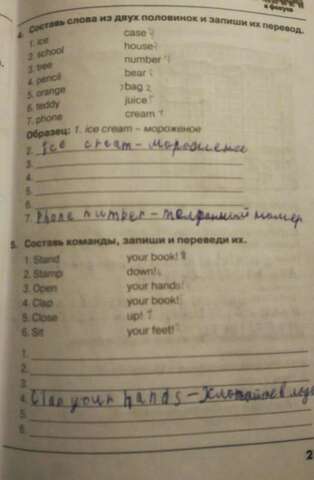 в фокусе
4. Составь слова из двух половинок и запиши их перевод.
1. ice case
2. school house
3. tree number
4. pencil bear
5. orange bag 2
6. teddy juice
7. phone cream 1
Образец: 1. ice cream – мороженое
2. Ice cream – мороженое
3.
4.
5.
6.
7. Phone number – номер
5. Составь команды, запиши и переведи их.
1. Stand your book!
2. Stamp down!
3. Open your hands!
4. Clap your book!
5. Close up!
6. Sit your feet!
1.
2.
3.
4. Clap your hands –
5.
6.
2